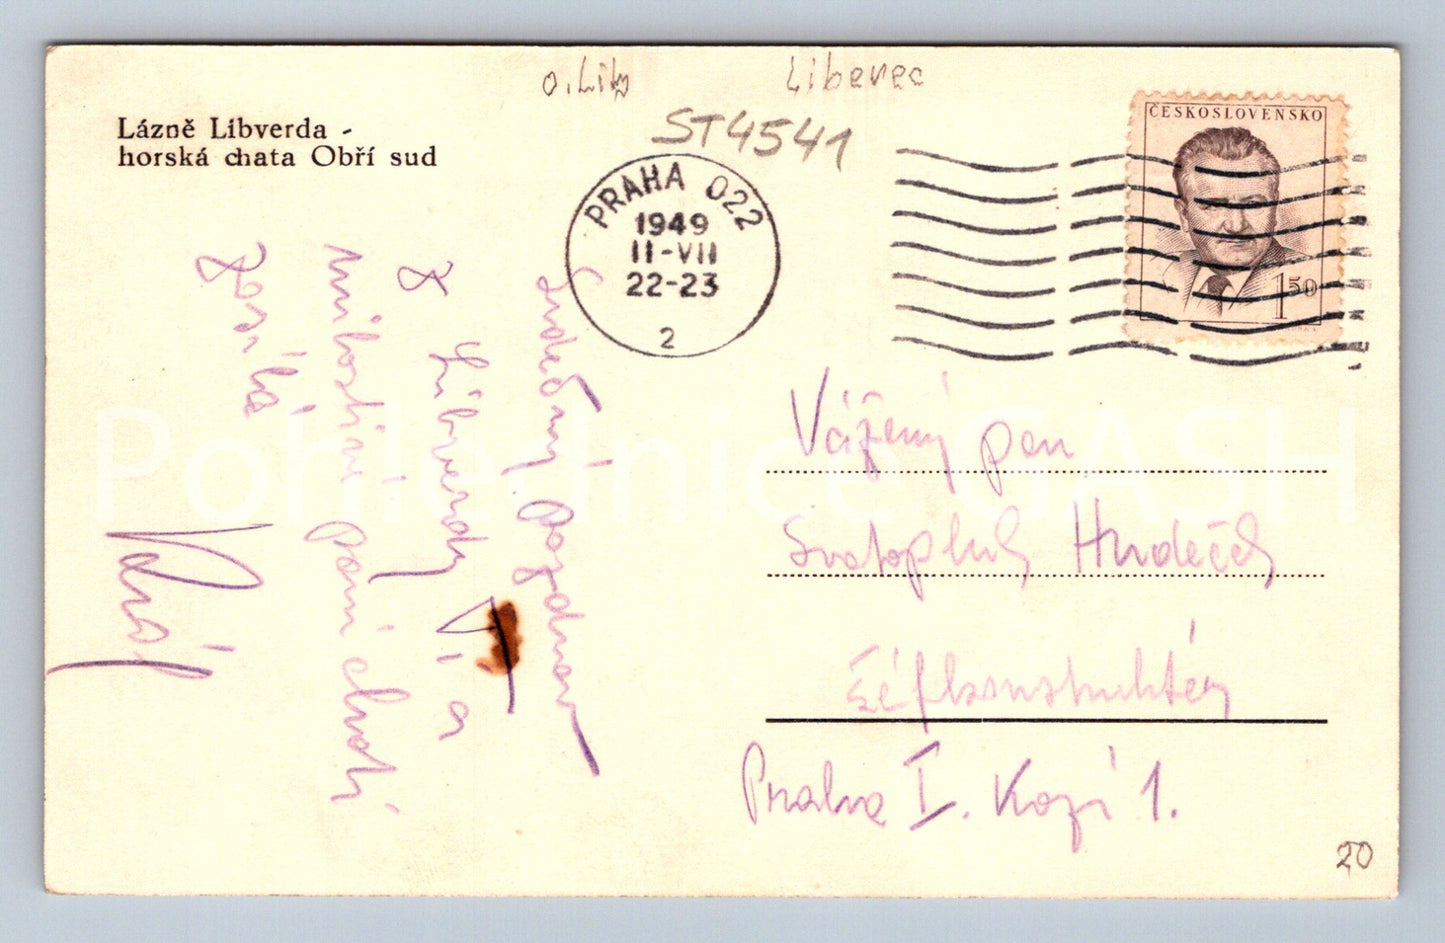 o. Lib
Liberec
ST4541
Lázně Libverda -
horská chata Obří sud
PRAHA 022
1949
11-VII
22-23
2
ČESKOSLOVENSKO
1 50
Srdečný pozdrav
z Libverdy
a
milostivé paní
Vážený pan
Svatopluk Hudeček
Praha I. Kozí 1.
20
Pohlednice GASH